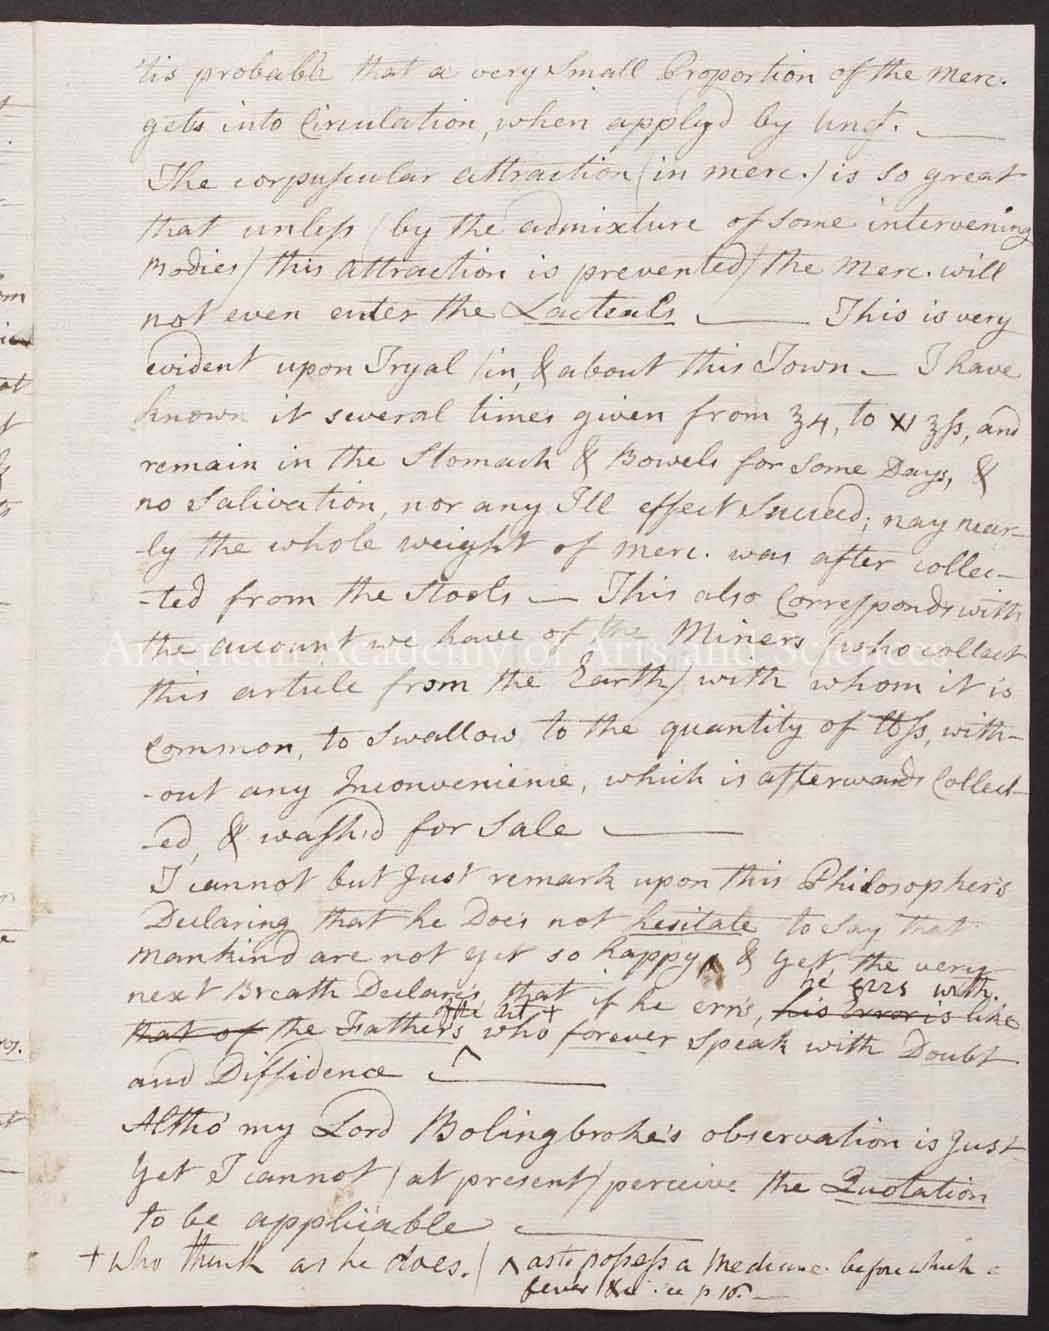 'tis probable that a very small Proportion of the Merc.
gets into Circulation, when apply'd by Ungt. —
The corpuscular attraction (in merc.) is so great
that unless (by the admixture of some intervening
Bodies) this attraction is prevented) the Merc. will
not even enter the Lacteals — This is very
evident upon Tryal (in, & about this Town — I have
known it several times given from ʒ4, to ʒss, and
remain in the Stomach & Bowels for some Days, &
no Salivation, nor any Ill effect Succeed; nay near-
-ly the whole weight of merc. was after collec-
-ted from the Stools — This also Corresponds with
the account we have of the Miners (who collect
this article from the Earth) with whom it is
Common, to Swallow to the quantity of lbss, with-
-out any Inconvenience, which is afterwards Collect-
-ed, & wash'd for Sale —
I cannot but Just remark upon this Philosopher's
Declaring that he Does not hesitate to say that
Mankind are not yet so happy ^ & yet, the very
he errs with
next Breath Declares, that if he errs, his Error is like
that of the Father's who forever speak with Doubt
and Diffidence ^ —
Altho' my Lord Bolingbroke's observation is Just
Yet I cannot (at present) perceive the Quotation
to be applicable —
+ who think as he does. / ^ as to possess a Medicine before which a
fever &c p 16. —
American Academy of Arts and Sciences